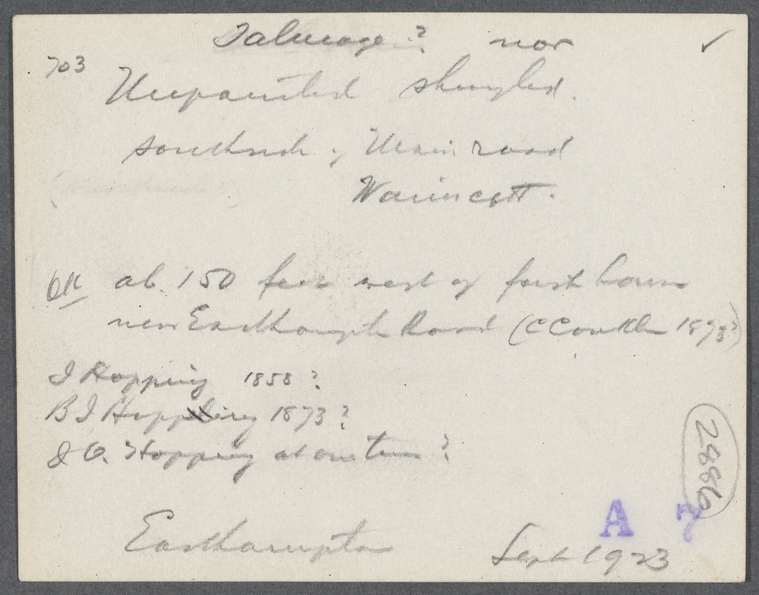 Talmage? nor ✓
703 Unpainted shingled.
south side of Main road
Wainscott.
OK ab. 150 feet west of first house
near Easthampton Road (C Conklin 1873?)
J Hopping 1858?
B J Hopping 1873?
J O. Hopping at one time?
2886
A 7
Easthampton Sept 1923